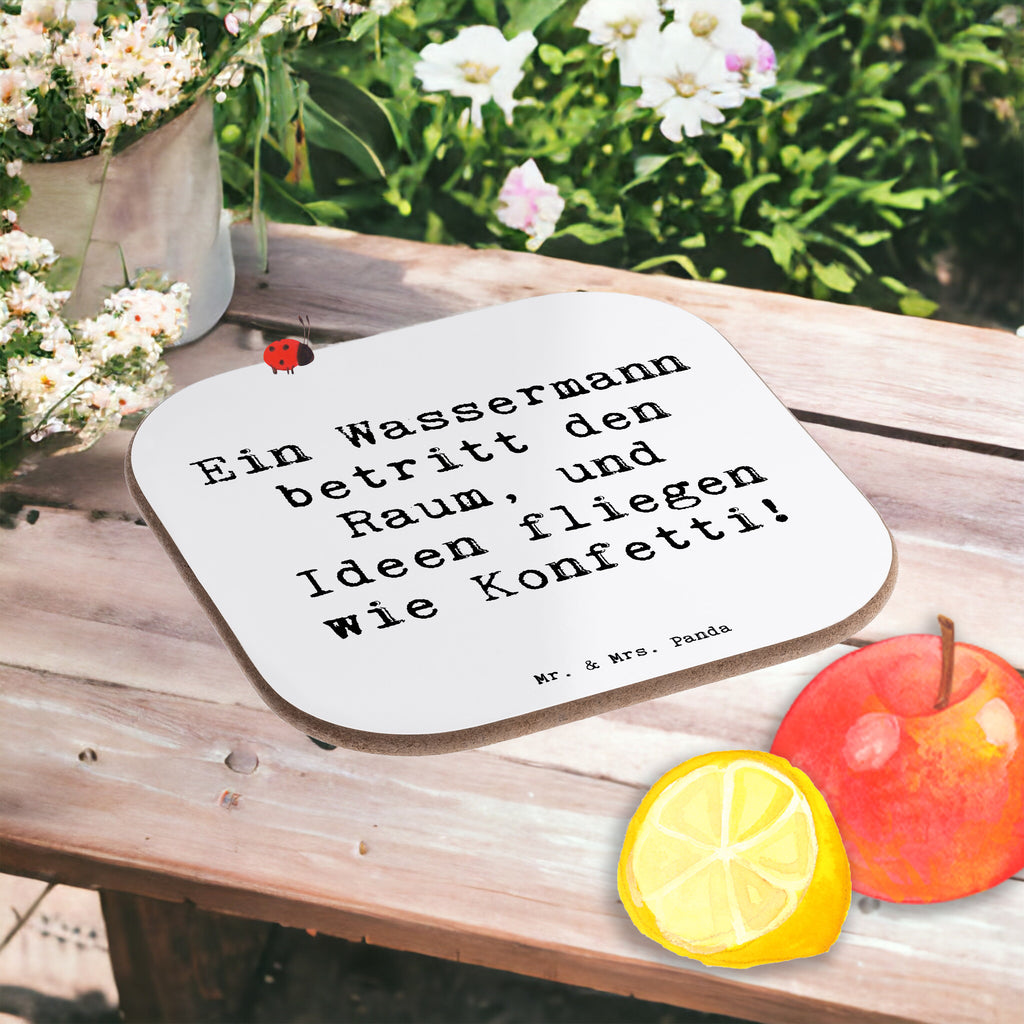 Ein Wassermann
betritt den
Raum, und
Ideen fliegen
wie Konfetti!
Mr. & Mrs. Panda